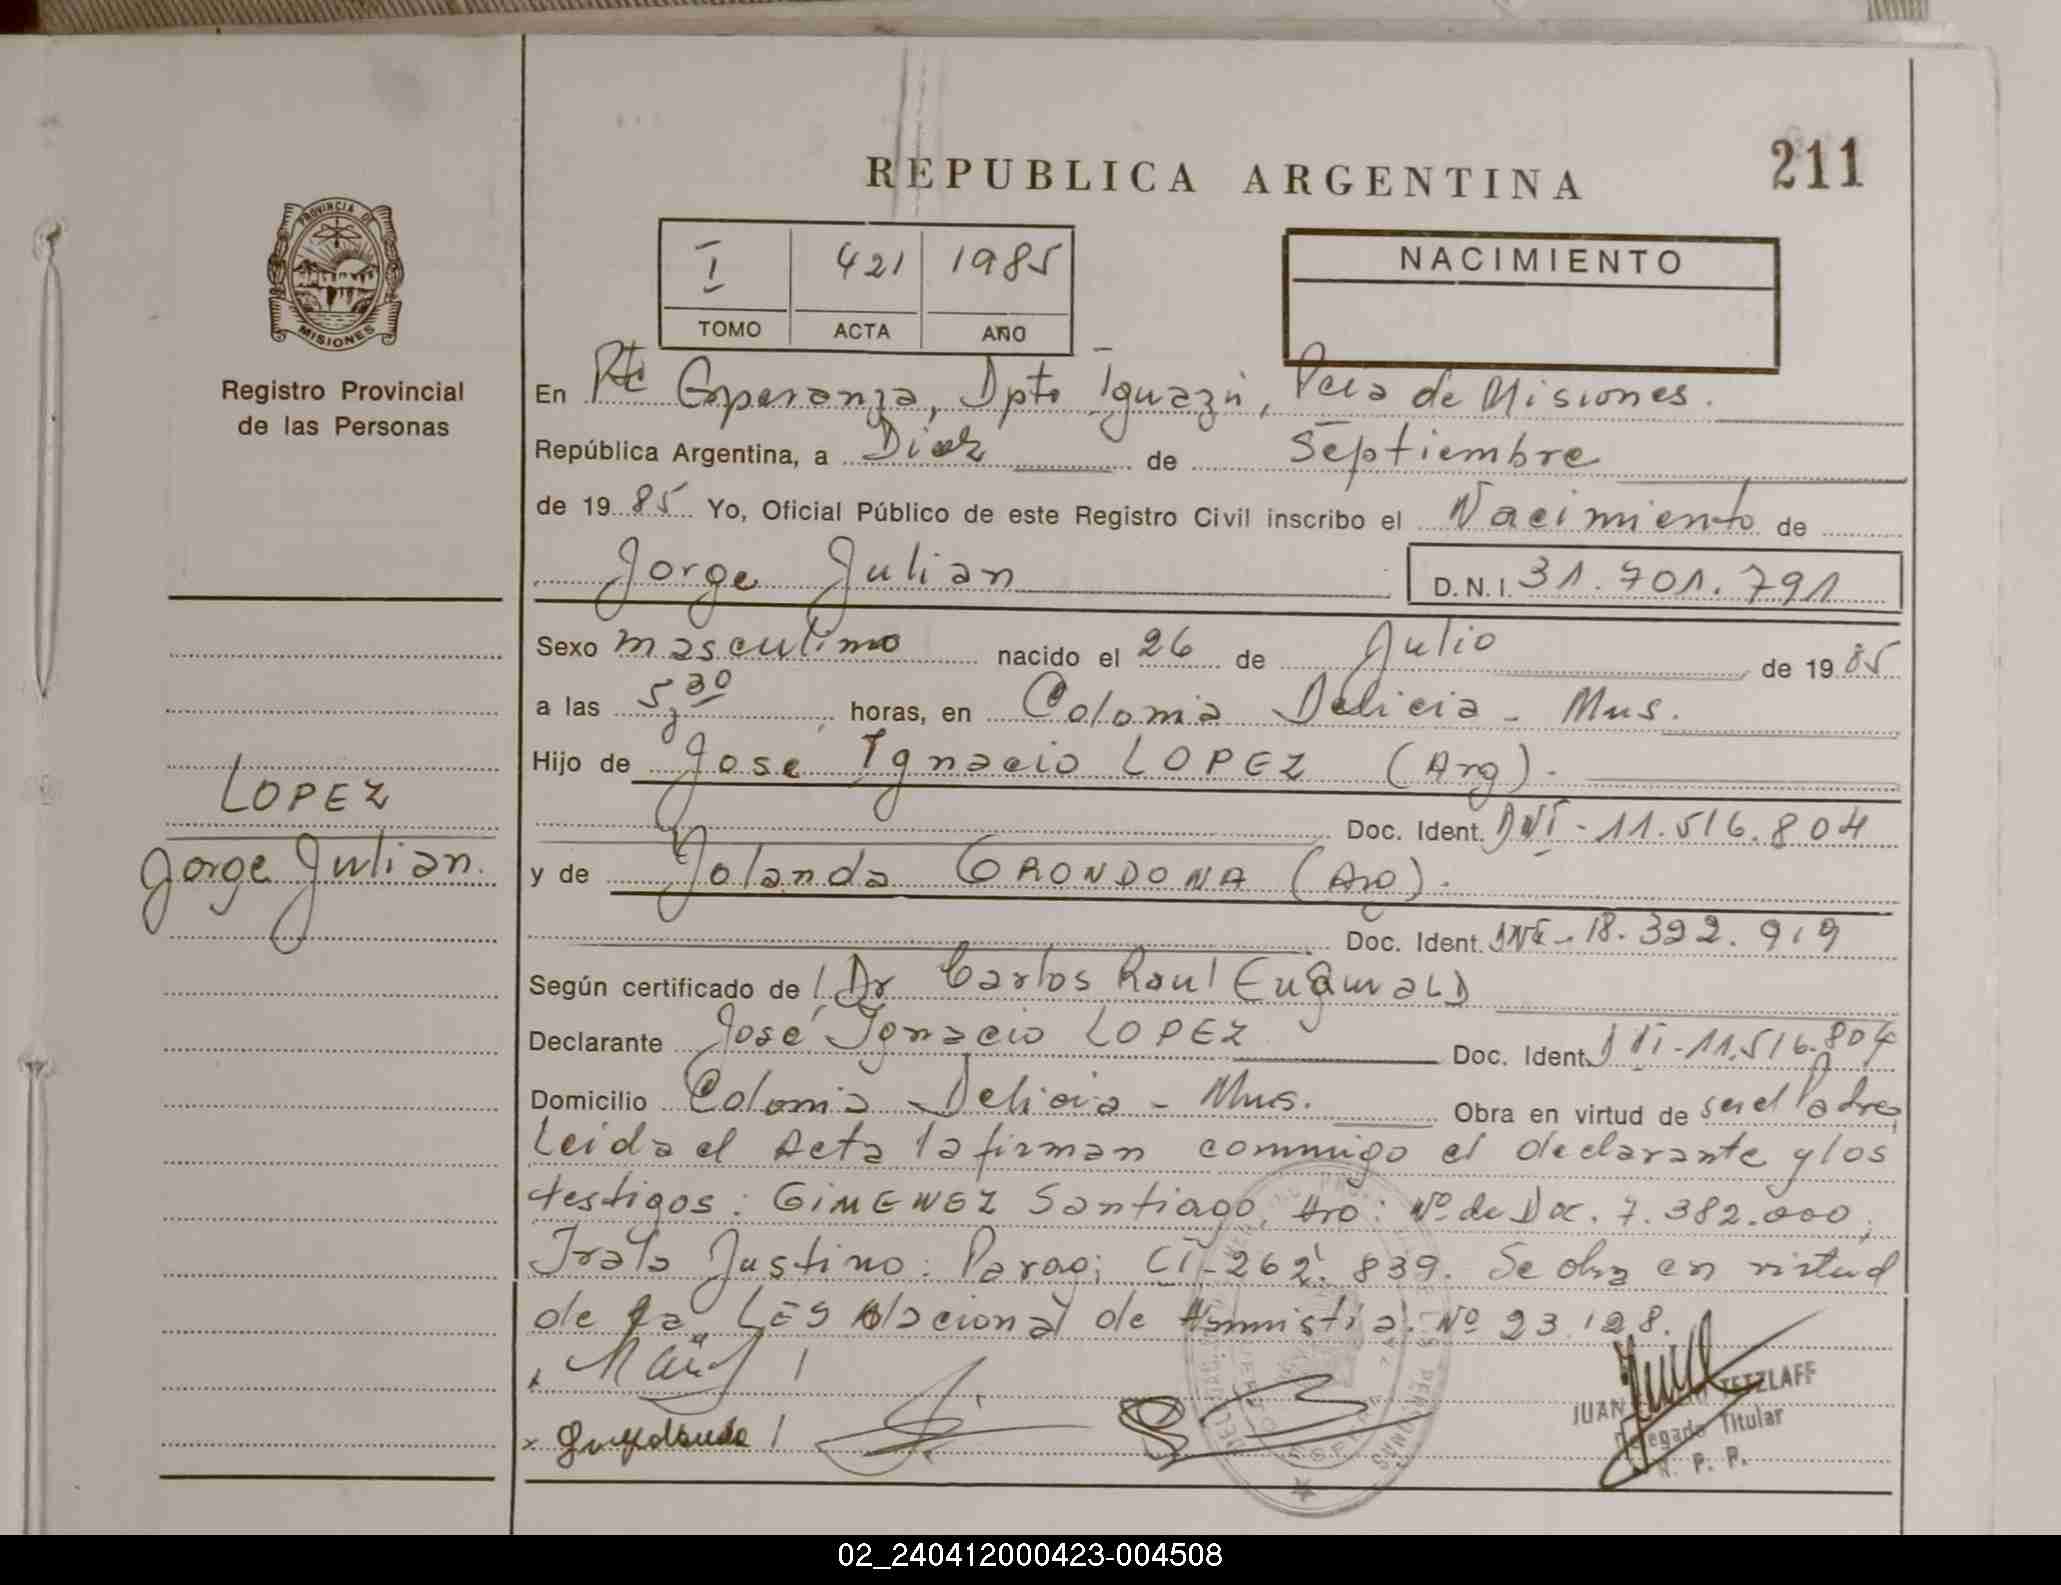 REPUBLICA ARGENTINA
211
PROVINCIA DE
MISIONES
Registro Provincial
de las Personas
I 421 1985
TOMO ACTA AÑO
NACIMIENTO
En Pto Esperanza, Dpto Iguazú, Pcia de Misiones.
República Argentina, a Diez de Septiembre
de 1985 Yo, Oficial Público de este Registro Civil inscribo el Nacimiento de
Jorge Julian D.N.I. 31.701.791
Sexo masculino nacido el 26 de Julio de 1985
a las 5,30 horas, en Colonia Delicia - Mnes.
Hijo de José Ignacio LOPEZ (Arg).
Doc. Ident. DNI - 11.516.804
LOPEZ
Jorge Julian.
y de Yolanda GRONDONA (Arg).
Doc. Ident. DNI - 18.392.919
Según certificado de Dr Carlos Raul
Declarante José Ignacio LOPEZ Doc. Ident. DNI - 11.516.804
Domicilio Colonia Delicia - Mnes. Obra en virtud de ser el Padre,
Leida el Acta la firman conmigo el declarante y los
testigos: GIMENEZ Santiago, Arg: Nº de Doc. 7.382.000,
Justino: Parag; CI - 262.839. Se obra en virtud
de la LEY Nacional de Amnistia. Nº 23.128.
JUAN TETZLAFF
Delegado Titular
R. P. P.
02_240412000423-004508